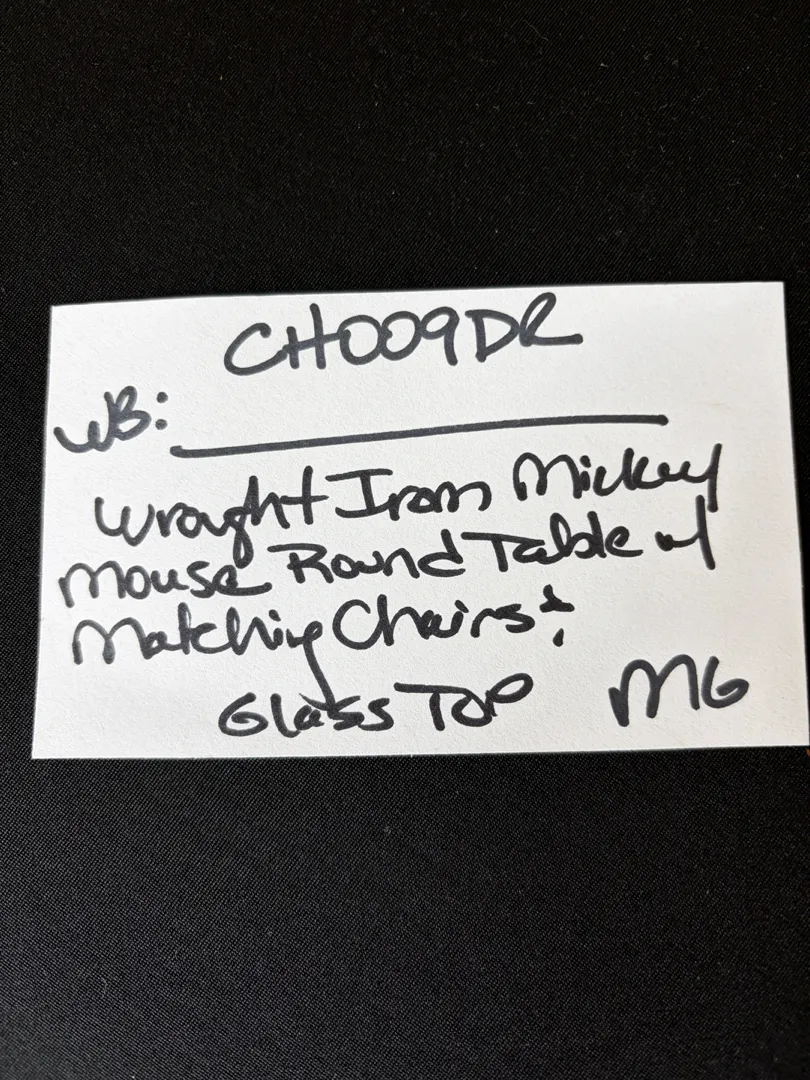 CH009DR
WB:
Wrought Iron Mickey
Mouse Round Table w/
Matching Chairs &
Glass Top MG